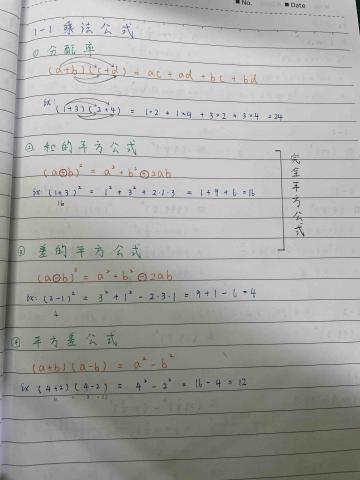 ■ No. ■ Date
1-1 乘法公式
① 分配率
(a+b)(c+d) = ac + ad + bc + bd
ex: (1+3)(2+4) = 1×2 + 1×4 + 3×2 + 3×4 = 24
② 和的平方公式
(a⊕b)² = a² + b² ⊕ 2ab
ex: (1+3)² = 1² + 3² + 2·1·3 = 1+9+6 = 16
16
完全平方公式
③ 差的平方公式
(a⊖b)² = a² + b² ⊖ 2ab
ex: (3-1)² = 3² + 1² - 2·3·1 = 9+1-6 = 4
4
④ 平方差公式
(a+b)(a-b) = a² - b²
ex (4+2)(4-2) = 4² - 2² = 16 - 4 = 12